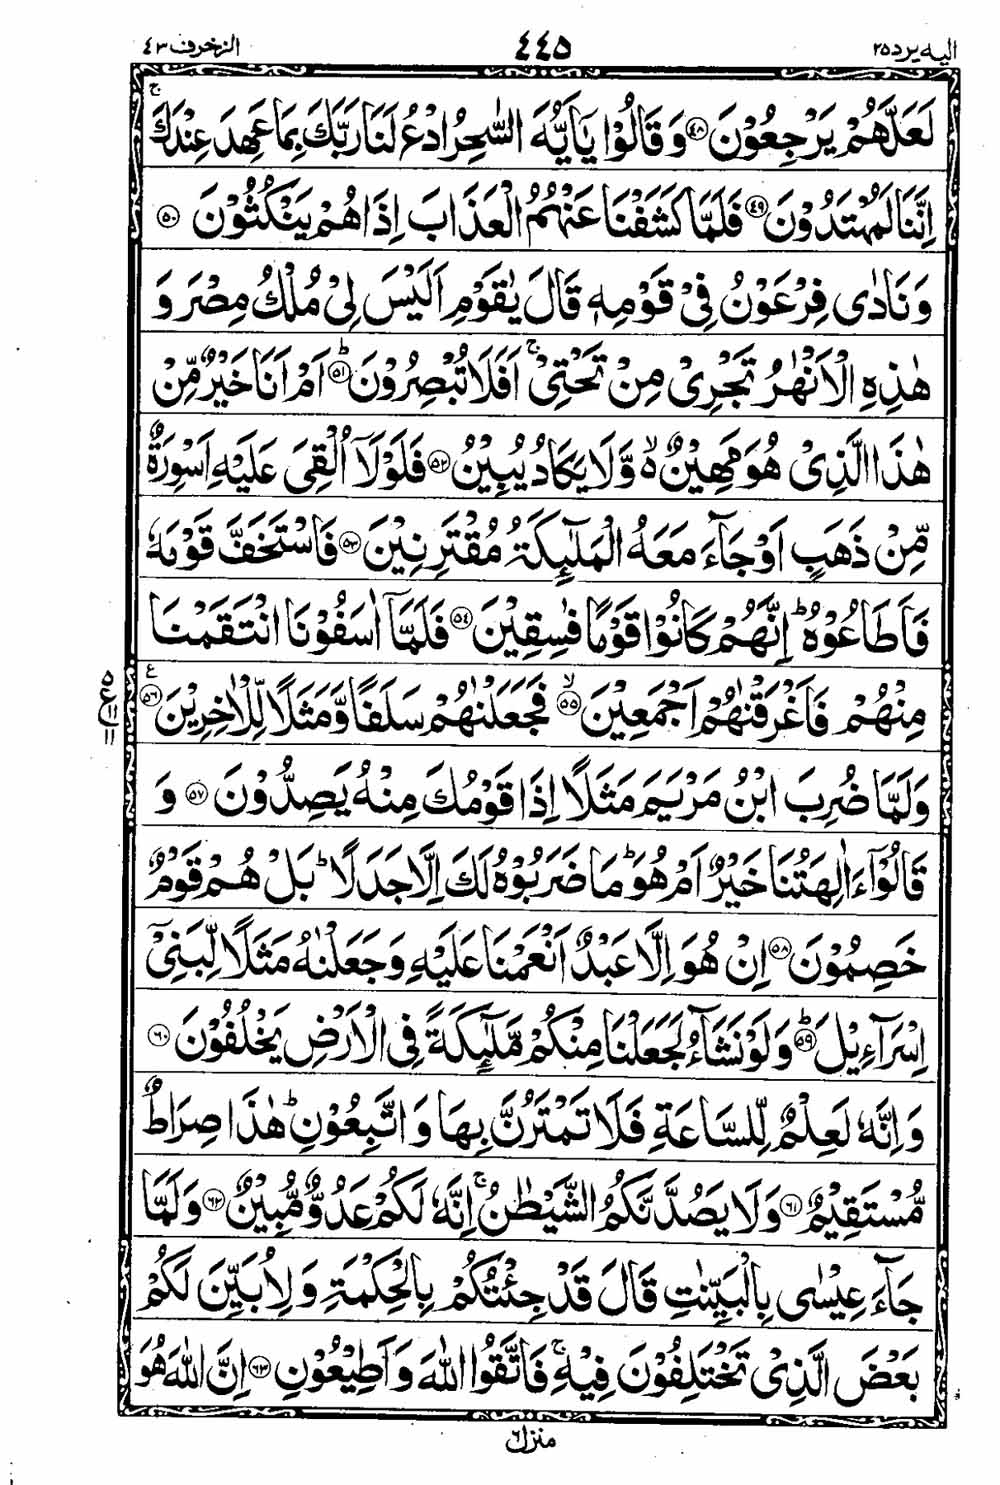 الیه یرد ۲۵
٤٤٥
الزخرف ٤٣
لَعَلَّهُمْ يَرْجِعُوْنَ ﴿٤٨﴾ وَقَالُوْا يٰۤاَيُّهَ السّٰحِرُ ادْعُ لَنَا رَبَّكَ بِمَا عَهِدَ عِنْدَكَ ۚ
اِنَّنَا لَمُهْتَدُوْنَ ﴿٤٩﴾ فَلَمَّا كَشَفْنَا عَنْهُمُ الْعَذَابَ اِذَا هُمْ يَنْكُثُوْنَ ﴿٥٠﴾
وَنَادٰى فِرْعَوْنُ فِيْ قَوْمِهٖ قَالَ يٰقَوْمِ اَلَيْسَ لِيْ مُلْكُ مِصْرَ وَ
هٰذِهِ الْاَنْهٰرُ تَجْرِيْ مِنْ تَحْتِيْ ۚ اَفَلَا تُبْصِرُوْنَ ﴿٥١﴾ؕ اَمْ اَنَا خَيْرٌ مِّنْ
هٰذَا الَّذِيْ هُوَ مَهِيْنٌ ۙ۬ وَّلَا يَكَادُ يُبِيْنُ ﴿٥٢﴾ فَلَوْلَاۤ اُلْقِيَ عَلَيْهِ اَسْوِرَةٌ
مِّنْ ذَهَبٍ اَوْ جَآءَ مَعَهُ الْمَلٰٓئِكَةُ مُقْتَرِنِيْنَ ﴿٥٣﴾ فَاسْتَخَفَّ قَوْمَهٗ
فَاَطَاعُوْهُ ؕ اِنَّهُمْ كَانُوْا قَوْمًا فٰسِقِيْنَ ﴿٥٤﴾ فَلَمَّاۤ اٰسَفُوْنَا انْتَقَمْنَا
مِنْهُمْ فَاَغْرَقْنٰهُمْ اَجْمَعِيْنَ ﴿٥٥﴾ۙ فَجَعَلْنٰهُمْ سَلَفًا وَّمَثَلًا لِّلْاٰخِرِيْنَ ﴿٥٦﴾ع
وَلَمَّا ضُرِبَ ابْنُ مَرْيَمَ مَثَلًا اِذَا قَوْمُكَ مِنْهُ يَصِدُّوْنَ ﴿٥٧﴾ وَ
قَالُوْۤا ءَاٰلِهَتُنَا خَيْرٌ اَمْ هُوَ ؕ مَا ضَرَبُوْهُ لَكَ اِلَّا جَدَلًا ؕ بَلْ هُمْ قَوْمٌ
خَصِمُوْنَ ﴿٥٨﴾ اِنْ هُوَ اِلَّا عَبْدٌ اَنْعَمْنَا عَلَيْهِ وَجَعَلْنٰهُ مَثَلًا لِّبَنِيْۤ
اِسْرَآءِيْلَ ﴿٥٩﴾ؕ وَلَوْ نَشَآءُ لَجَعَلْنَا مِنْكُمْ مَّلٰٓئِكَةً فِي الْاَرْضِ يَخْلُفُوْنَ ﴿٦٠﴾
وَاِنَّهٗ لَعِلْمٌ لِّلسَّاعَةِ فَلَا تَمْتَرُنَّ بِهَا وَاتَّبِعُوْنِ ؕ هٰذَا صِرَاطٌ
مُّسْتَقِيْمٌ ﴿٦١﴾ وَلَا يَصُدَّنَّكُمُ الشَّيْطٰنُ ۚ اِنَّهٗ لَكُمْ عَدُوٌّ مُّبِيْنٌ ﴿٦٢﴾ وَلَمَّا
جَآءَ عِيْسٰى بِالْبَيِّنٰتِ قَالَ قَدْ جِئْتُكُمْ بِالْحِكْمَةِ وَلِاُبَيِّنَ لَكُمْ
بَعْضَ الَّذِيْ تَخْتَلِفُوْنَ فِيْهِ ۚ فَاتَّقُوا اللّٰهَ وَاَطِيْعُوْنِ ﴿٦٣﴾ اِنَّ اللّٰهَ هُوَ
٥ ع ١١ ١١
منزل ٦